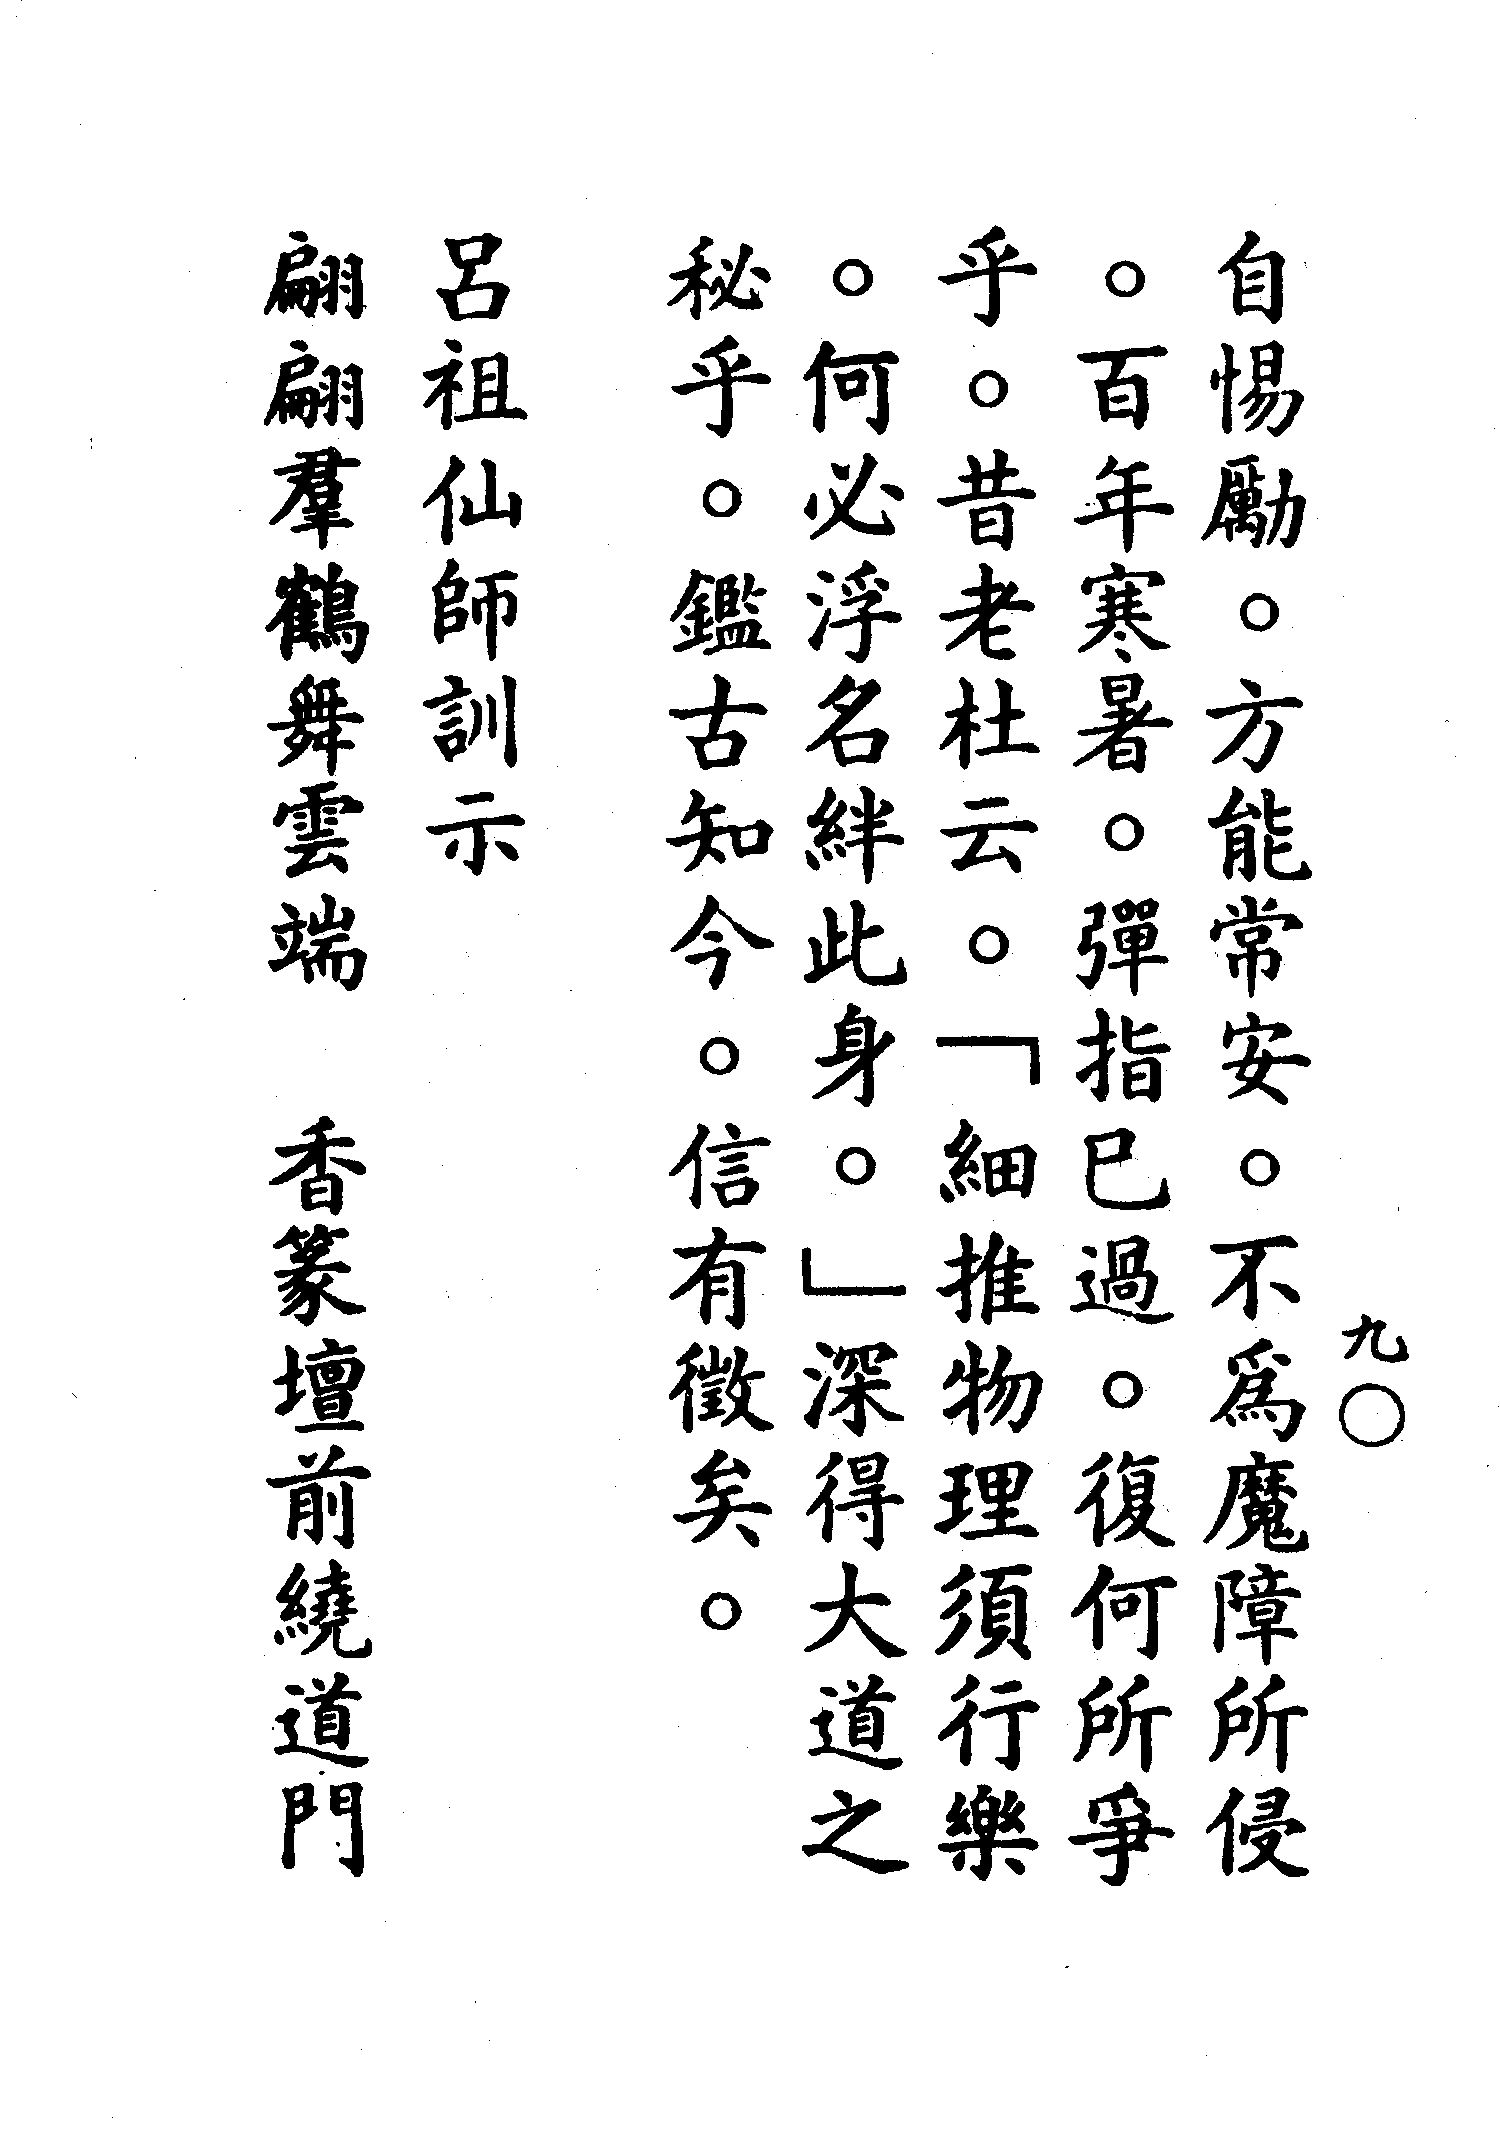 九〇
自惕勵。方能常安。不爲魔障所侵
。百年寒暑。彈指已過。復何所爭
乎。昔老杜云。「細推物理須行樂
。何必浮名絆此身。」深得大道之
秘乎。鑑古知今。信有徵矣。
呂祖仙師訓示
翩翩羣鶴舞雲端　香篆壇前繞道門